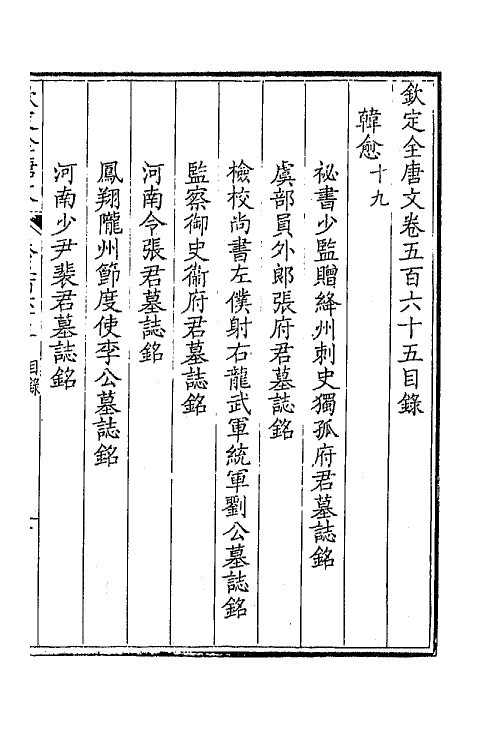 欽定全唐文卷五百六十五目錄
韓愈十九
祕書少監贈絳州刺史獨孤府君墓誌銘
虞部員外郎張府君墓誌銘
檢校尚書左僕射右龍武軍統軍劉公墓誌銘
監察御史衞府君墓誌銘
河南令張君墓誌銘
鳳翔隴州節度使李公墓誌銘
河南少尹裴君墓誌銘
目錄